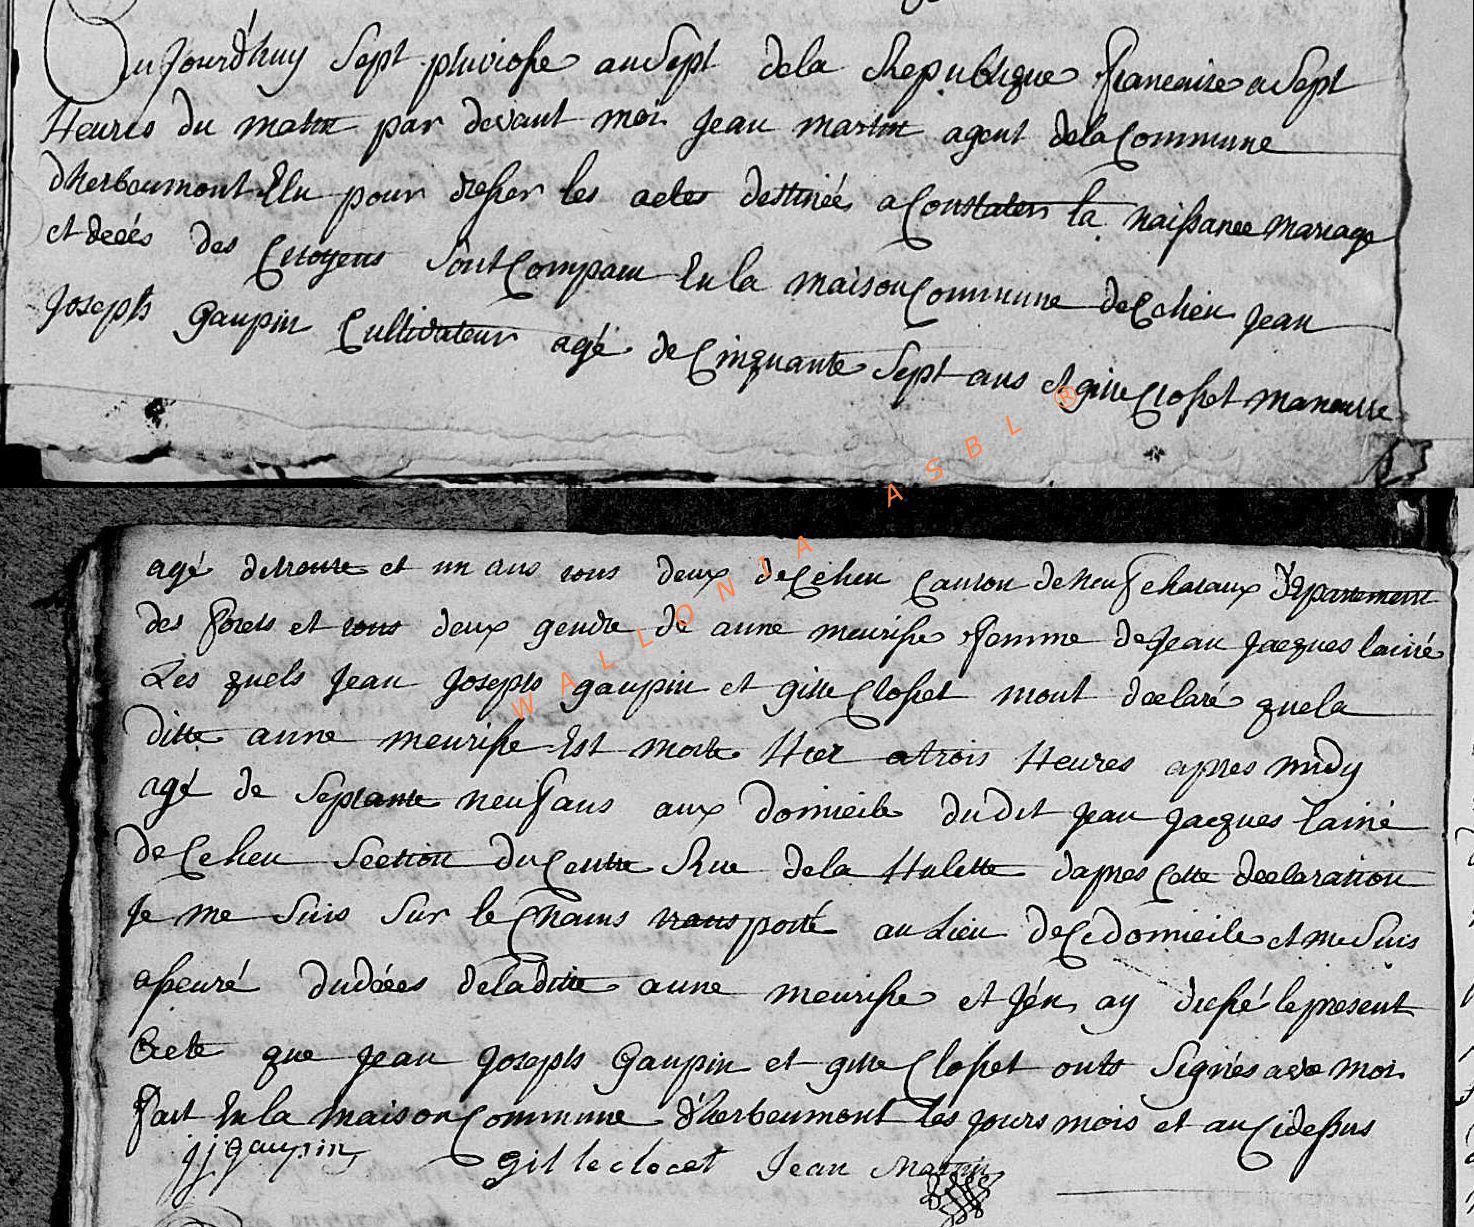 Aujourd'huy Sept pluviose an Sept de la Republique francaise a Sept
Heures du matin par devant moi Jean martin agent de la Commune
d'herbeumont Elu pour dresser les actes destinée a Constater la naissance mariage
et decés des Citoyens Sont Comparu En la maison Commune de Ce lieu Jean
Joseph Gaupin Cultivateur agé de Cinquante Sept ans et gille Closset
agé de trente et un ans tous deux de Ce lieu Canton de neufchataux Departement
des forets et tous deux gendre de anne meurisse femme de Jean Jacques lainé
Les quels Jean Joseph gaupin et gille Closset mont declaré que la
ditte anne meurisse Est morte Hier a trois Heures apres midy
agé de Septante neuf ans aux domicile dudit Jean Jacques lainé
de Ce lieu Section du Centre Rue de la Hulette dapres Cette declaration
Je me Suis Sur le Chams transporté au Lieu de Ce domicile et me Suis
asseuré du décés de la ditte anne meurisse et J'en ay dressé le present
Acte que Jean Joseph Gaupin et gille Closset onts Signés avec moi
fait En la maison Commune d'herbeumont les jours mois et an Cidessus
jjgaupin gille clocet Jean Martin
WALLONIA ASBL ®